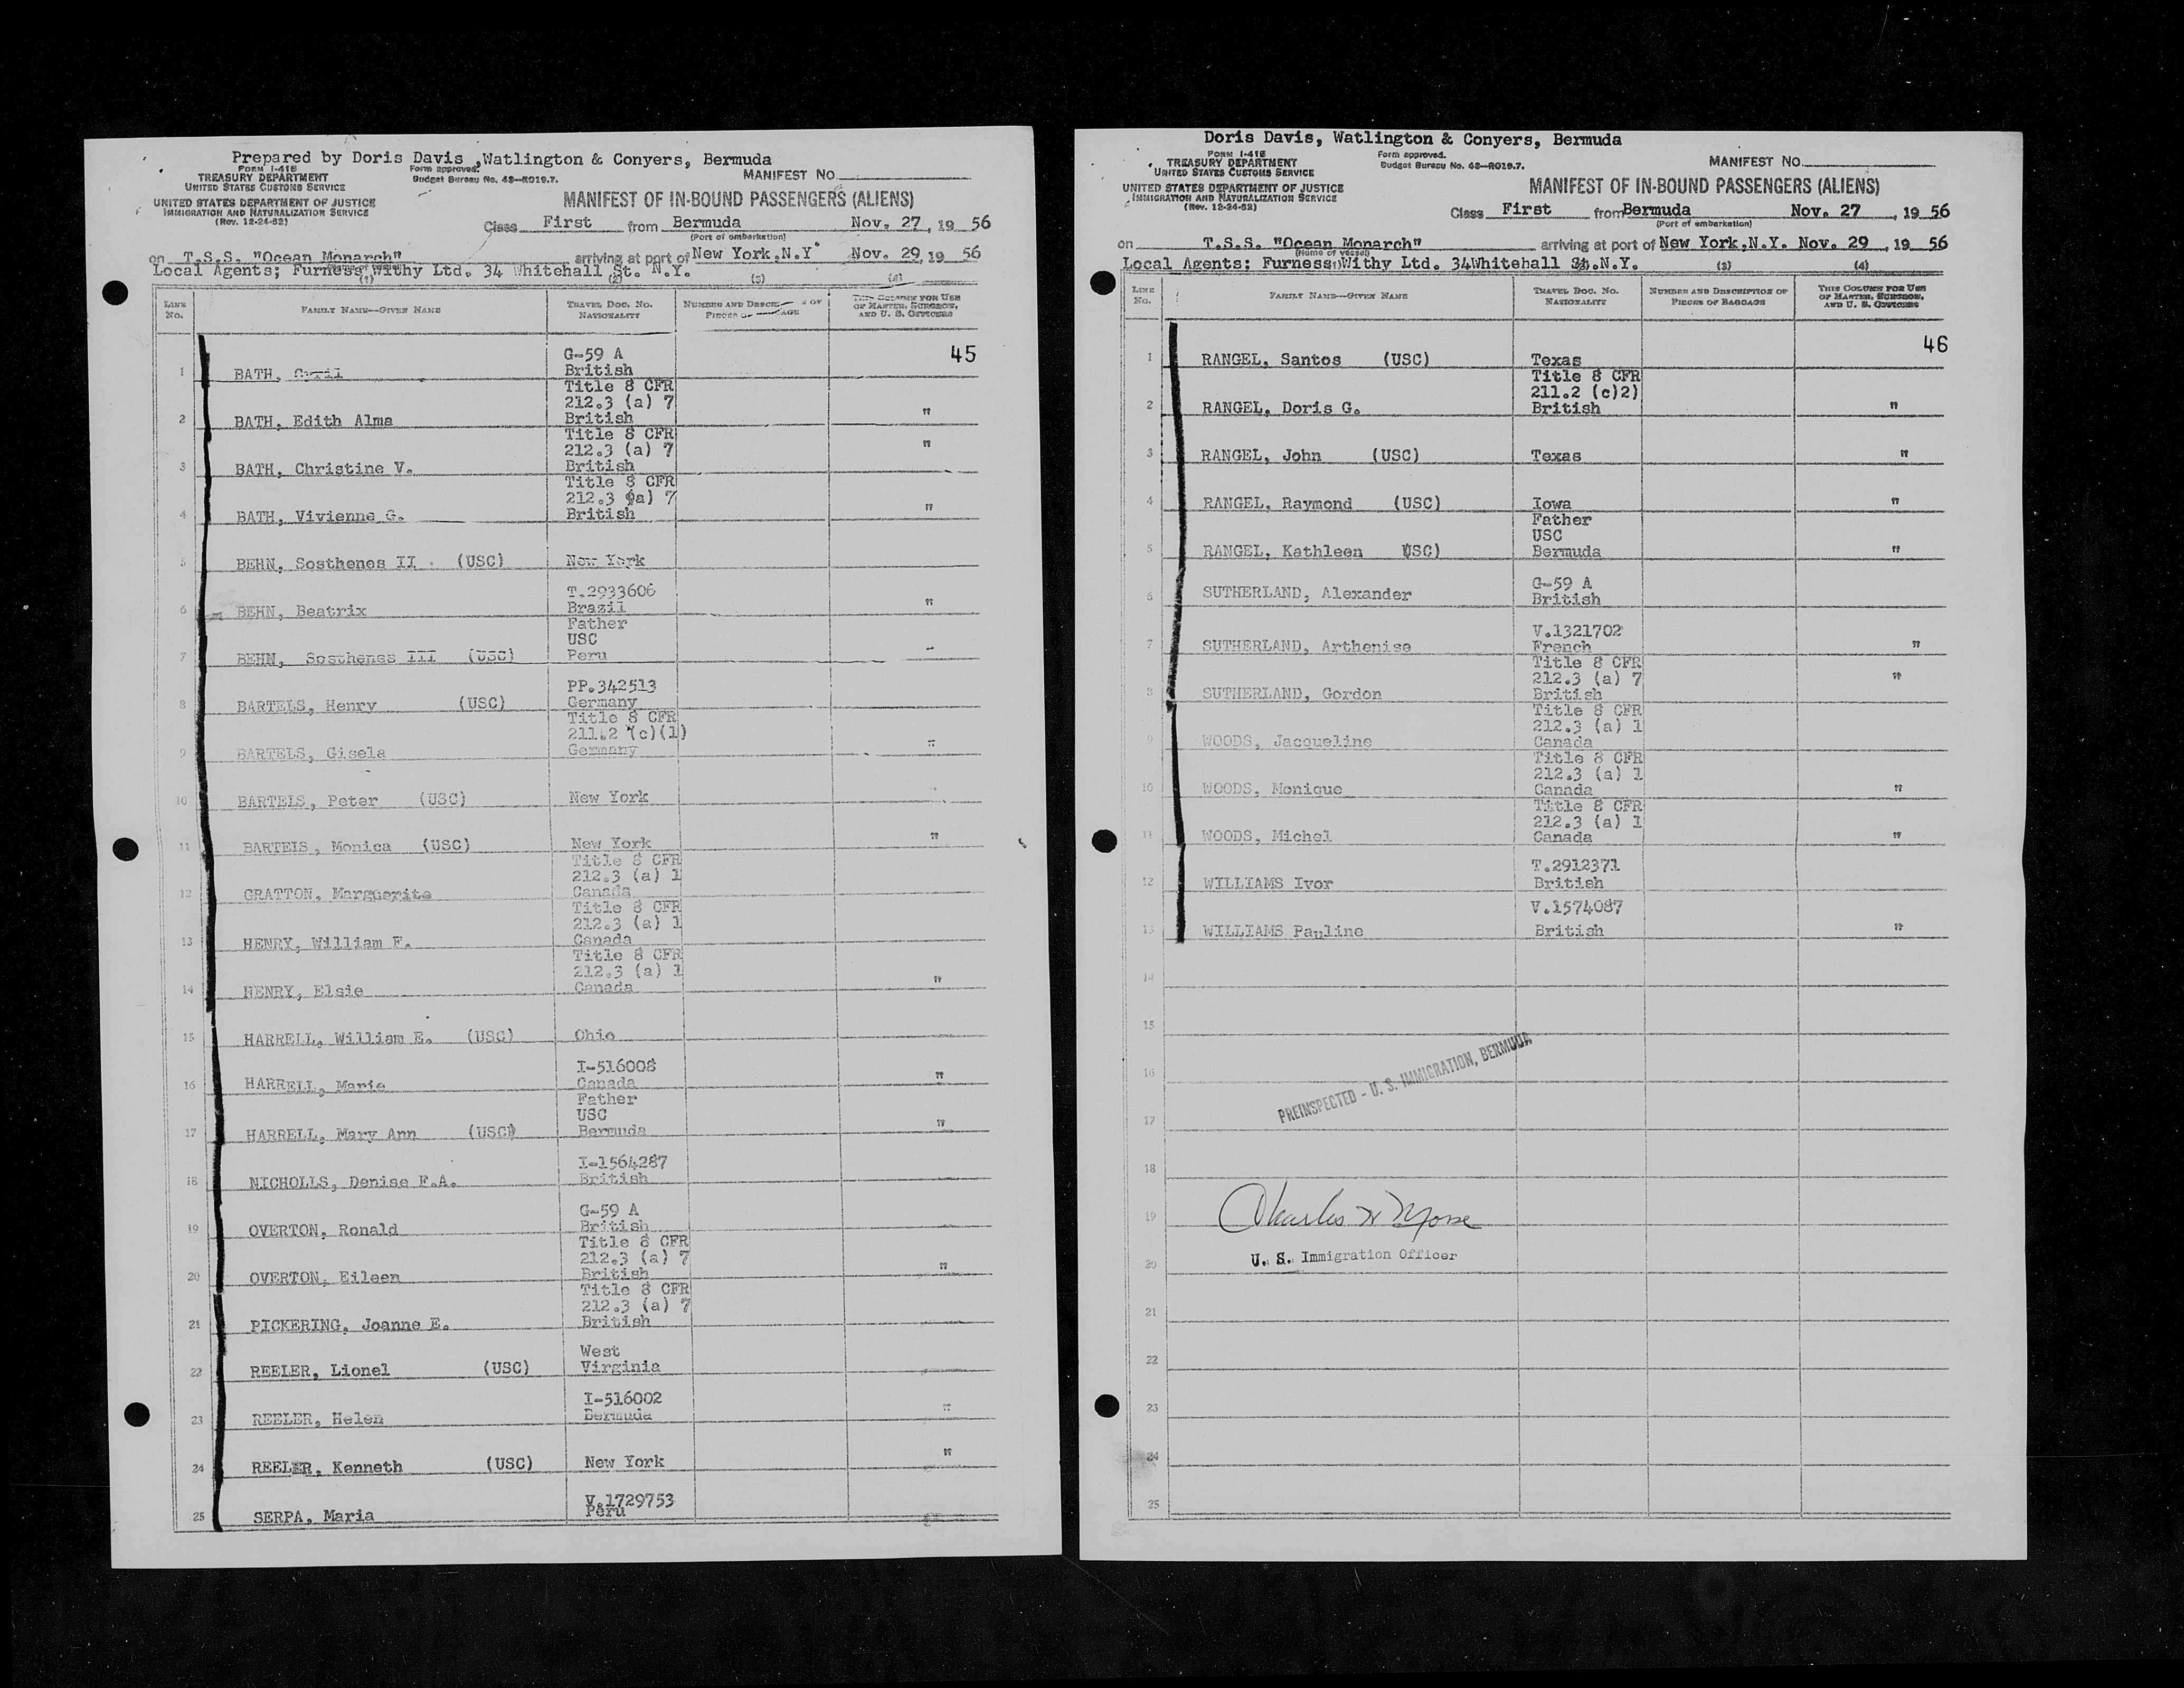 Prepared by Doris Davis ,Watlington & Conyers, Bermuda
FORM I-415
TREASURY DEPARTMENT
UNITED STATES CUSTOMS SERVICE
Form approved.
Budget Bureau No. 43—R019.7.
MANIFEST NO.
UNITED STATES DEPARTMENT OF JUSTICE
IMMIGRATION AND NATURALIZATION SERVICE
(Rev. 12-24-52)
MANIFEST OF IN-BOUND PASSENGERS (ALIENS)
Class First from Bermuda Nov. 27, 19 56
(Port of embarkation)
on T.S.S. "Ocean Monarch" arriving at port of New York,N.Y Nov. 29, 19 56
Local Agents; Furness Withy Ltd. 34 Whitehall St. N.Y.
(1) (2) (3) (4)
LINE No.
FAMILY NAME—GIVEN NAME
TRAVEL DOC. NO. NATIONALITY
NUMBER AND
THIS COLUMN FOR USE OF MASTER, SURGEON, AND U. S. OFFICERS
G-59 A 45
1 BATH, Cyril British
Title 8 CFR
212.3 (a) 7
2 BATH, Edith Alma British "
Title 8 CFR
212.3 (a) 7 "
3 BATH, Christine V. British
Title 8 CFR
212.3 (a) 7
4 BATH, Vivienne G. British "
5 BEHN, Sosthenes II . (USC) New York
T.2933606
6 BEHN, Beatrix Brazil "
Father
USC
7 BEHN, Sosthenes III (USC) Peru "
PP.342513
8 BARTELS, Henry (USC) Germany
Title 8 CFR
211.2 (c)(1)
9 BARTELS, Gisela Germany "
10 BARTELS, Peter (USC) New York "
11 BARTELS, Monica (USC) New York "
Title 8 CFR
212.3 (a) 1
12 GRATTON, Marguerite Canada
Title 8 CFR
212.3 (a) 1
13 HENRY, William F. Canada
Title 8 CFR
212.3 (a) 1
14 HENRY, Elsie Canada "
15 HARRELL, William E. (USC) Ohio
I-516008
16 HARRELL, Marie Canada "
Father
USC
17 HARRELL, Mary Ann (USC) Bermuda "
I-1564287
18 NICHOLLS, Denise F.A. British
G-59 A
19 OVERTON, Ronald British
Title 8 CFR
212.3 (a) 7
20 OVERTON, Eileen British "
Title 8 CFR
212.3 (a) 7
21 PICKERING, Joanne E. British
West
22 REELER, Lionel (USC) Virginia
I-516002
23 REELER, Helen Bermuda "
24 REELER, Kenneth (USC) New York "
V.1729753
25 SERPA, Maria Peru
Doris Davis, Watlington & Conyers, Bermuda
FORM I-415
TREASURY DEPARTMENT
UNITED STATES CUSTOMS SERVICE
Form approved.
Budget Bureau No. 43—R019.7.
MANIFEST NO.
UNITED STATES DEPARTMENT OF JUSTICE
IMMIGRATION AND NATURALIZATION SERVICE
(Rev. 12-24-52)
MANIFEST OF IN-BOUND PASSENGERS (ALIENS)
Class First from Bermuda Nov. 27, 19 56
(Port of embarkation)
on T.S.S. "Ocean Monarch" arriving at port of New York,N.Y. Nov. 29, 19 56
(Name of vessel)
Local Agents; Furness Withy Ltd. 34Whitehall St.N.Y.
(3) (4)
LINE No.
FAMILY NAME—GIVEN NAME
TRAVEL DOC. NO. NATIONALITY
NUMBER AND DESCRIPTION OF PIECES OF BAGGAGE
THIS COLUMN FOR USE OF MASTER, SURGEON, AND U. S. OFFICERS
46
1 RANGEL, Santos (USC) Texas
Title 8 CFR
211.2 (c)2)
2 RANGEL, Doris G. British "
3 RANGEL, John (USC) Texas "
4 RANGEL, Raymond (USC) Iowa "
Father
USC
5 RANGEL, Kathleen (USC) Bermuda "
G-59 A
6 SUTHERLAND, Alexander British
V.1321702
7 SUTHERLAND, Arthenise French "
Title 8 CFR
212.3 (a) 7 "
8 SUTHERLAND, Gordon British
Title 8 CFR
212.3 (a) 1
9 WOODS, Jacqueline Canada
Title 8 CFR
212.3 (a) 1
10 WOODS, Monique Canada "
Title 8 CFR
212.3 (a) 1
11 WOODS, Michel Canada "
T.2912371
12 WILLIAMS Ivor British
V.1574087
13 WILLIAMS Pauline British "
14
15
16
PREINSPECTED - U. S. IMMIGRATION, BERMUDA
17
18
19 Charles W Morse
20 U. S. Immigration Officer
21
22
23
24
25